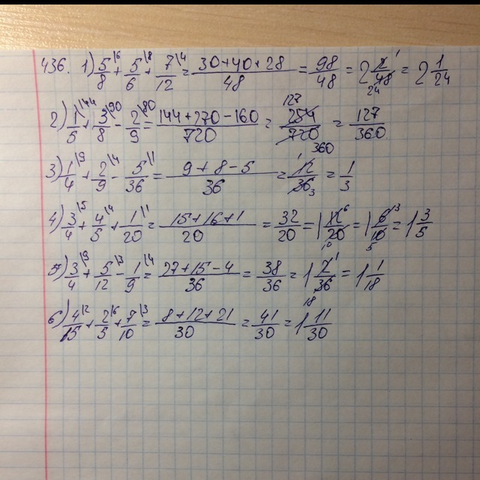 436. 1) 5/8 \6 + 5/6 \8 + 7/12 \4 = (30+40+28)/48 = 98/48 = 2 2/48 1 24 = 2 1/24
2) 1/5 \144 + 3/8 \90 - 2/9 \80 = (144+270-160)/720 = 254/720 127 360 = 127/360
3) 1/4 \9 + 2/9 \4 - 5/36 \1 = (9+8-5)/36 = 12/36 1 3 = 1/3
4) 3/4 \5 + 4/5 \4 + 1/20 \1 = (15+16+1)/20 = 32/20 = 1 12/20 6 10 = 1 6/10 3 5 = 1 3/5
5) 3/4 \9 + 5/12 \3 - 1/9 \4 = (27+15-4)/36 = 38/36 = 1 2/36 1 18 = 1 1/18
6) 4/15 \2 + 2/5 \6 + 7/10 \3 = (8+12+21)/30 = 41/30 = 1 11/30